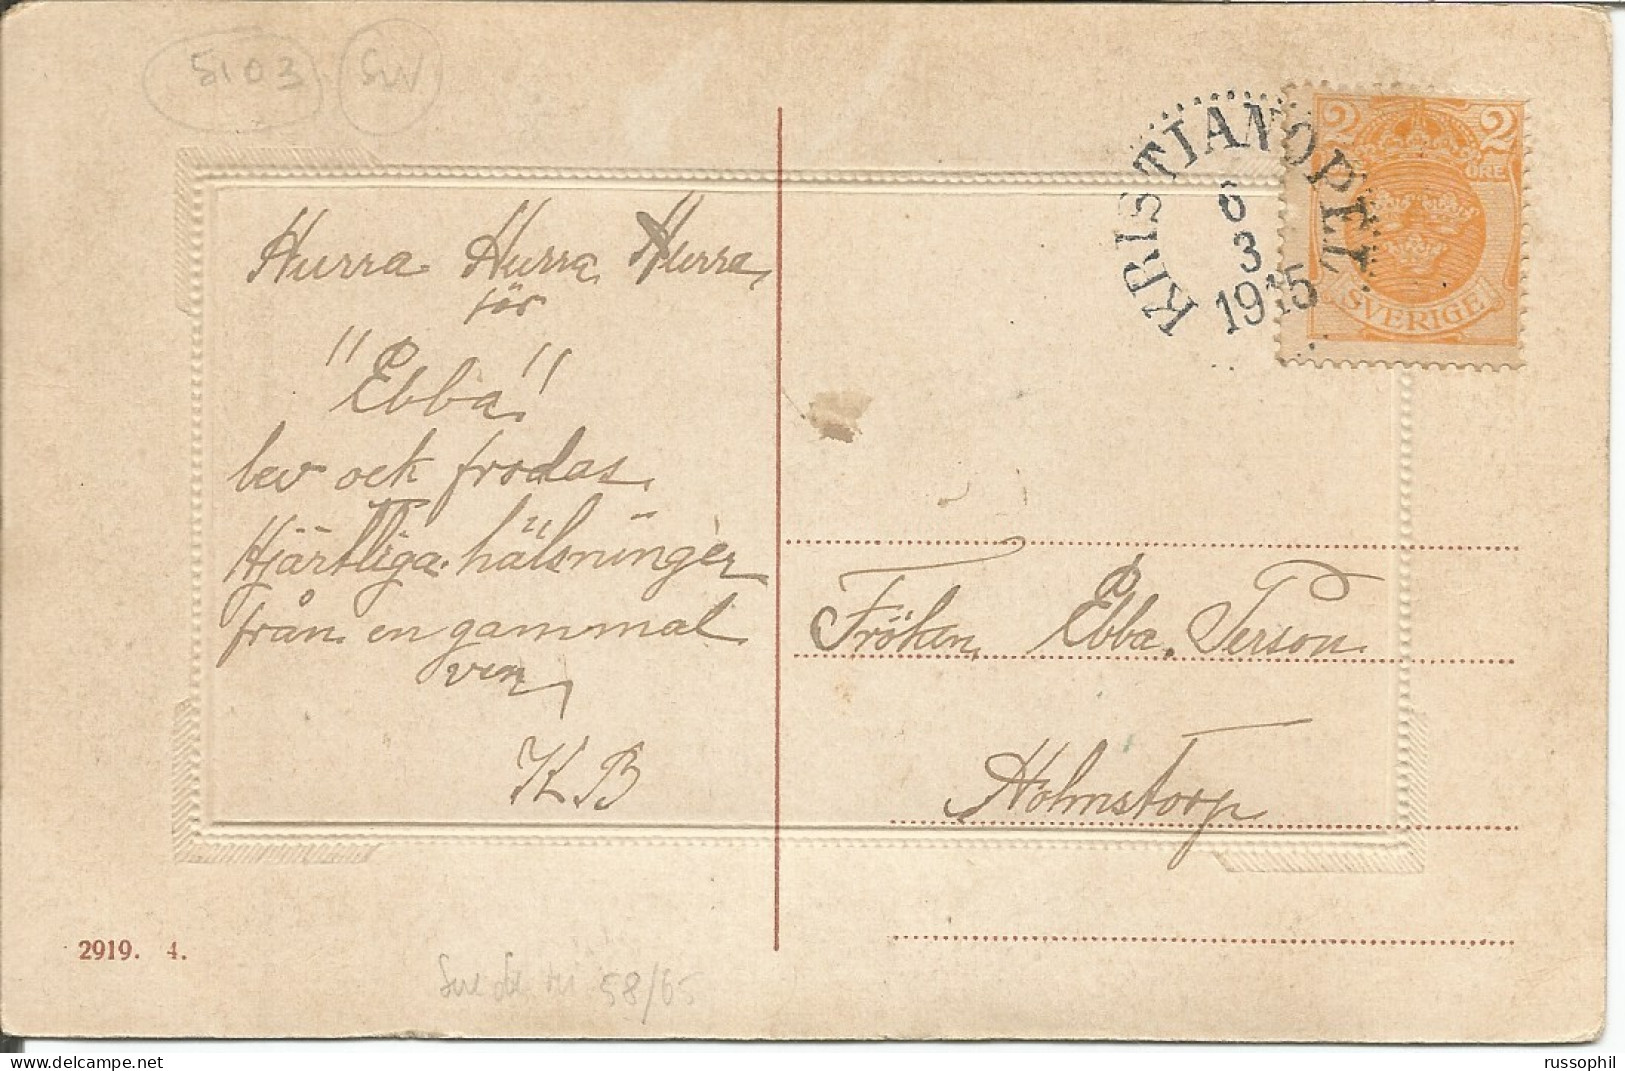 5103 SW
KRISTIANOPEL
6
3
1915
2 2
ÖRE
SVERIGE
Hurra Hurra Hurra
för
"Ebba"!
lev ock frodas.
Hjärtliga hälsningar
från en gammal
vän
K B
Fröken Ebba Person
Holmstorp
2919. 4.
58/65
russophil